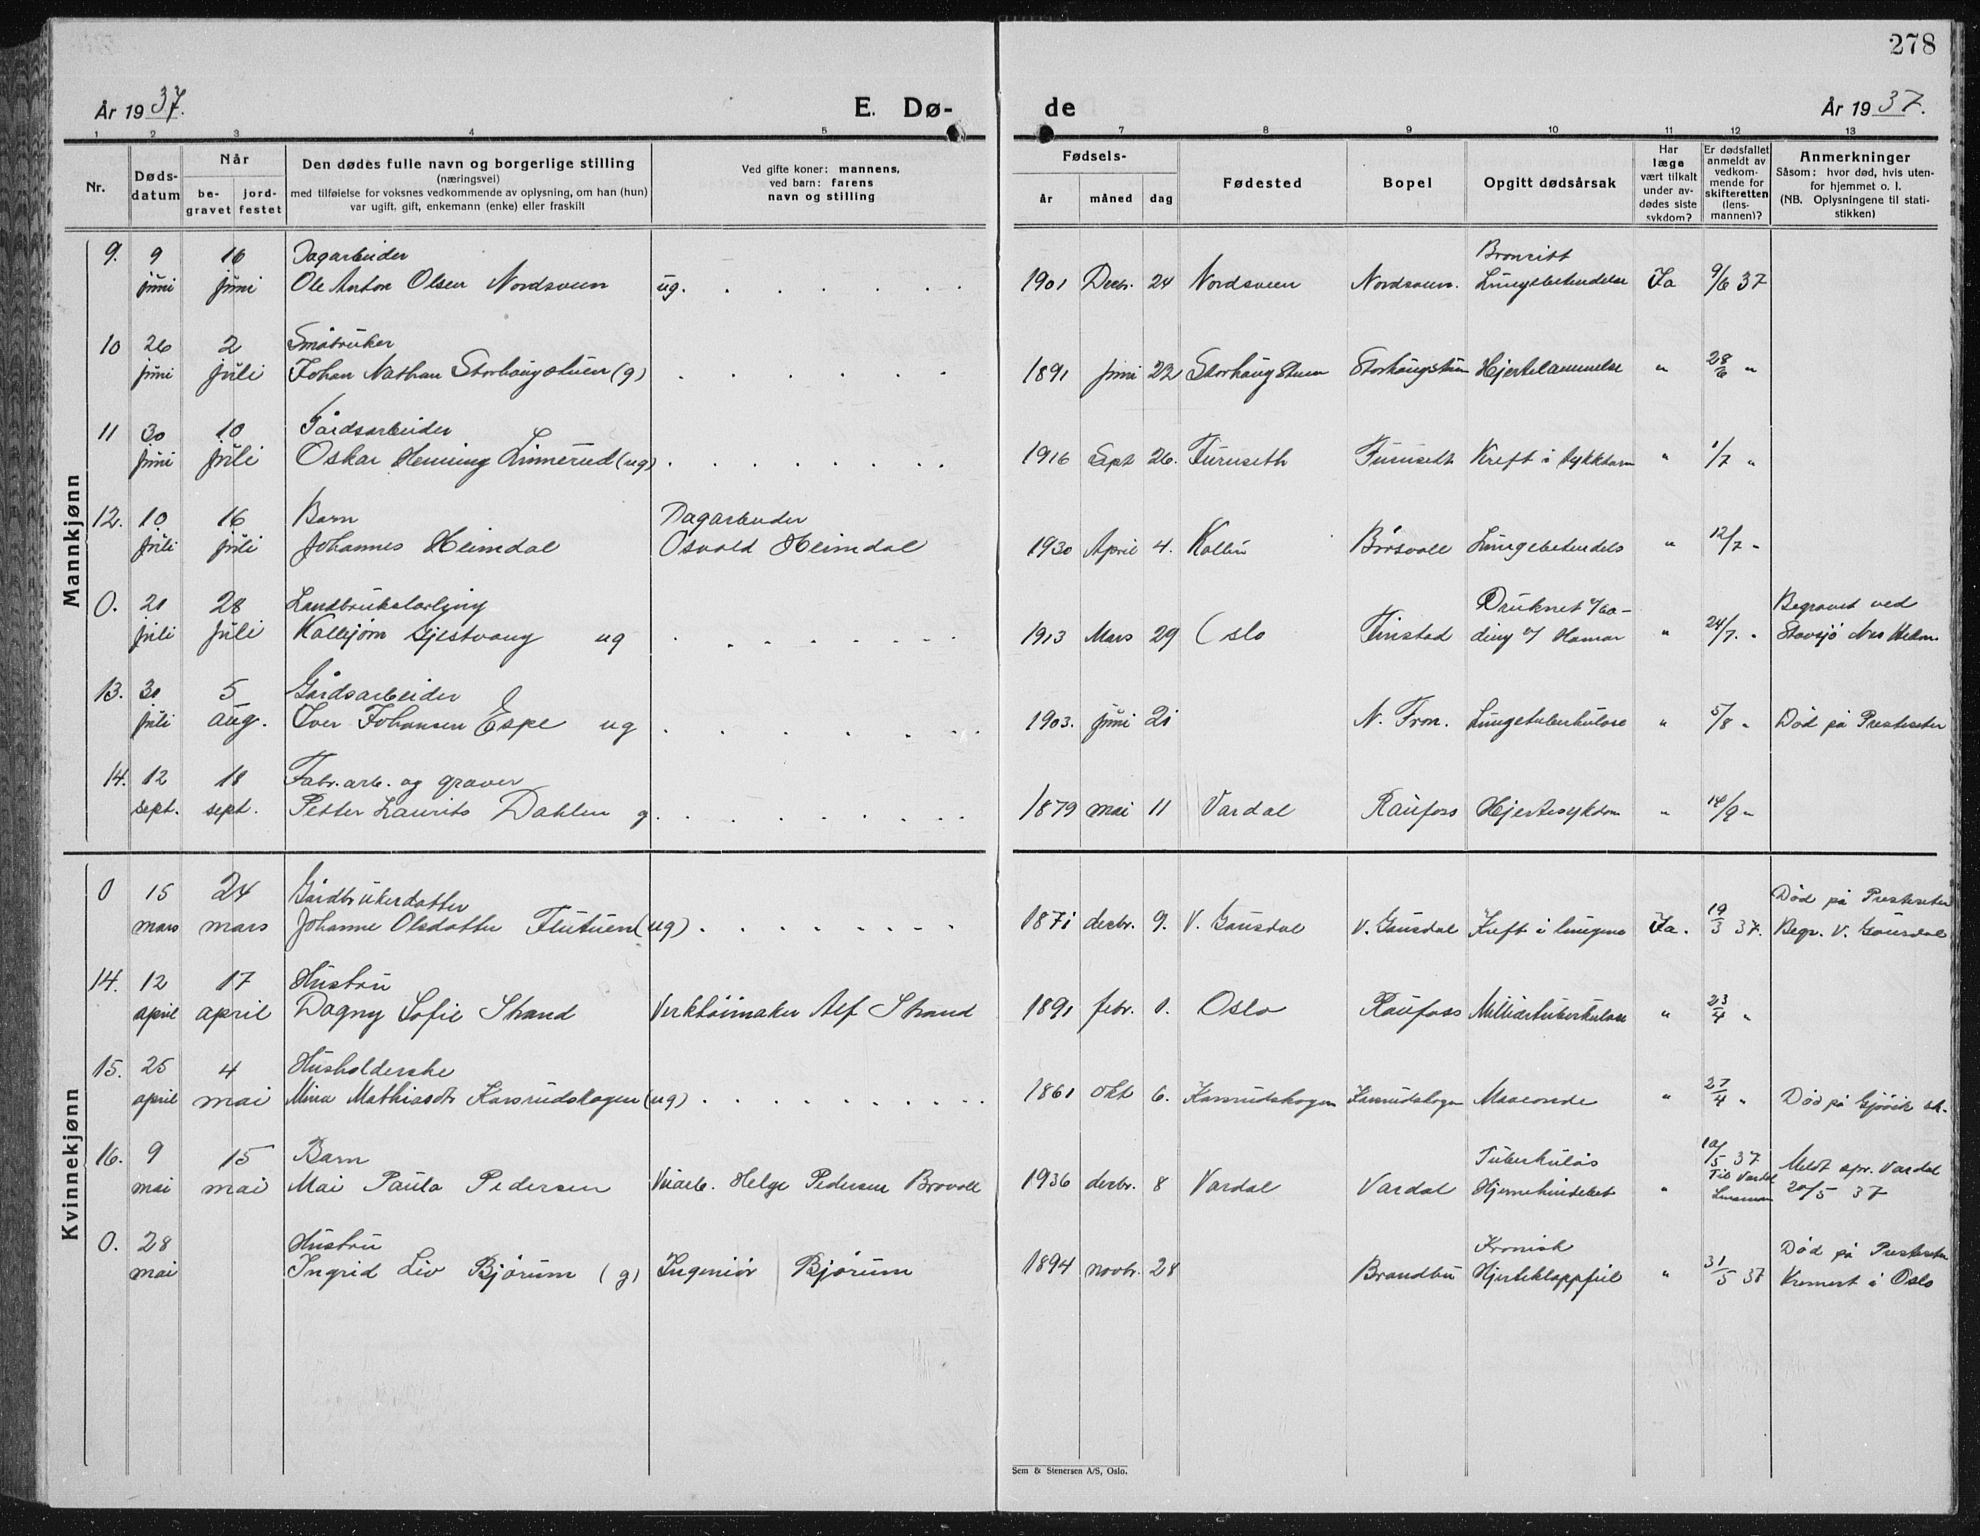 278
År 1937.
E. Dø-
de
År 1937.
1 2 3 4 5 7 8 9 10 11 12 13
Nr.
Døds-
datum
Når
be-
gravet
jord-
festet
Den dødes fulle navn og borgerlige stilling
(næringsvei)
med tilføielse for voksnes vedkommende av oplysning, om han (hun)
var ugift, gift, enkemann (enke) eller fraskilt
Ved gifte koner: mannens,
ved barn: farens
navn og stilling
Fødsels-
år måned dag
Fødested
Bopel
Opgitt dødsårsak
Har
læge
vært tilkalt
under av-
dødes siste
sykdom?
Er dødsfallet
anmeldt av
vedkom-
mende for
skifteretten
(lens-
mannen)?
Anmerkninger
Såsom: hvor død, hvis uten-
for hjemmet o. l.
(NB. Oplysningene til stati-
stikken)
Mannkjønn
9. 9 16 Dagarbeider
juni juni Ole Anton Olsen Nordsveen ug. 1901 Decbr. 24 Nordsveen Nordsveen. Ja 9/6 37
10 26 2 Småbruker
juni juli Johan Nathan Storhaugstuen (g) 1891 juni 22 Storhaugstuen Storhaugstuen Hjertelammelse " 28/6 "
11 30 10 Gårdsarbeider
juni juli Oskar Henning Linnerud (ug) 1916 Sept 26. Furuseth Furuseth Kreft i tykktarm " 1/7 "
12. 10 16 Barn Dagarbeider
juli juli Johannes Heimdal Osvald Heimdal 1930 April 4. Børsvoll " 12/7 "
0. 21 28 Druknet Begravet ved
juli juli Kallejørn Gjestvang ug 1913 Mars 29 Oslo Finstad Hamar " 24/7. " Stavsjø Nes Hedm.
13. 30 5 Gårdsarbeider
juli aug. Iver Johansen Espe ug 1903. juni 21 N. Fron. Lungetuberkulose " 5/8 " Død på Presteseter
14. 12 18 Fabr. arb. og graver
sept. sept. Petter Laurits Dahlen g 1879 mai 11 Vardal Raufoss Hjertesykdom " 14/9 "
Kvinnekjønn
0 15 24 Gårdbrukerdatter Død på Presteseter
mars mars Johanne Olsdatter Flutuen (ug) 1871 desbr. 9. V. Gausdal V. Gausdal Kreft i lungene Ja. 19/3 37. Begr. V. Gausdal
14. 12 17 Hustru
april april Dagny Sofie Strand Verktøimaker Alf Strand 1891 febr. 1. Oslo Raufoss Milliærtuberkulose " 23/4 "
15. 25 4 Husholderske
april mai Mina Mathiasdtr Karsrudskogen (ug) 1861 okt 6. Karsrudskogen Karsrudskogen " 27/4 " Død på Gjøvik sk.
16. 9 15 Barn Tuberkuløs 10/5 37 Meldt spr. Vardal
mai mai Mai Paula Pedersen Helge Pedersen Brovoll 1936 desbr. 8 Vardal Vardal " Til Vardal Lensmann 20/5 37
0. 28 Hustru Kronisk Død på Presteseter
mai Ingrid Liv Bjørum (g) Ingeniør Bjørum 1894 novbr. 28 Brandbu Hjerteklappfeil " 31/5 37 Kremert i Oslo
Sem & Stenersen A/S, Oslo.